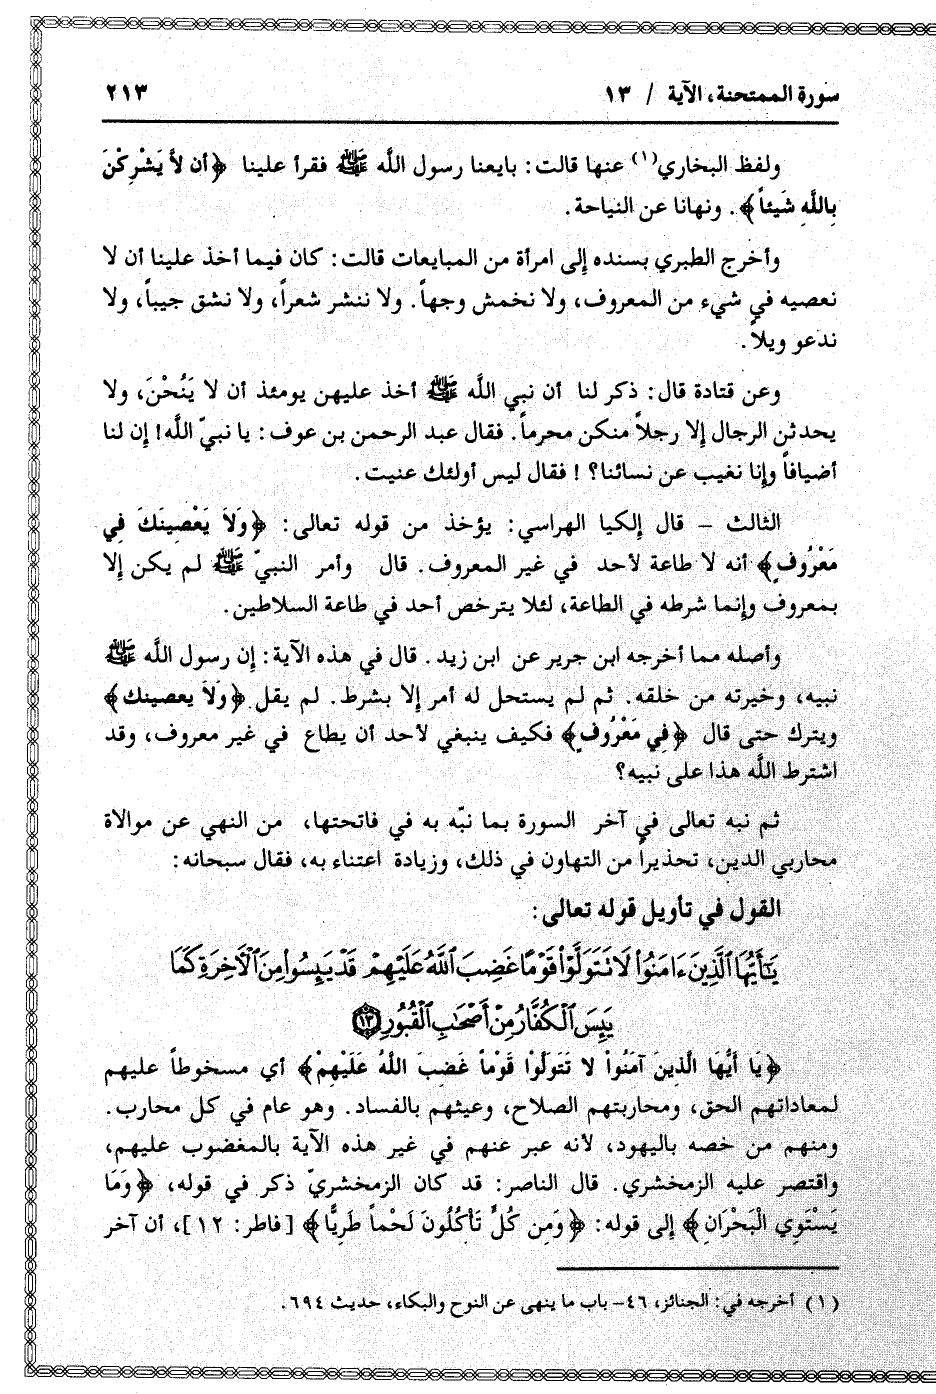 سورة الممتحنة، الآية / ١٣
٢١٣
ولفظ البخاري(١) عنها قالت: بايعنا رسول اللَّه ﷺ فقرأ علينا ﴿أن لاَّ يَشْرِكْنَ
بِاللَّهِ شَيئاً﴾. ونهانا عن النياحة.
وأخرج الطبري بسنده إلى امرأة من المبايعات قالت: كان فيما أخذ علينا أن لا
نعصيه في شيء من المعروف، ولا نخمش وجهاً. ولا ننشر شعراً، ولا نشق جيباً، ولا
ندعو ويلاً.
وعن قتادة قال: ذكر لنا أن نبي اللَّه ﷺ أخذ عليهن يومئذ أن لا يَنُحْنَ، ولا
يحدثن الرجال إلا رجلاً منكن محرماً. فقال عبد الرحمن بن عوف: يا نبيّ اللَّه! إن لنا
أضيافاً وإنا نغيب عن نسائنا؟! فقال ليس أولئك عنيت.
الثالث – قال إلكيا الهراسي: يؤخذ من قوله تعالى: ﴿وَلاَ يَعْصِينَكَ فِي
مَعْرُوفٍ﴾ أنه لا طاعة لأحد في غير المعروف. قال وأمر النبيّ ﷺ لم يكن إلا
بمعروف وإنما شرطه في الطاعة، لئلا يترخص أحد في طاعة السلاطين.
وأصله مما أخرجه ابن جرير عن ابن زيد. قال في هذه الآية: إن رسول اللَّه ﷺ
نبيه، وخيرته من خلقه. ثم لم يستحل له أمر إلا بشرط. لم يقل ﴿وَلاَ يعصينك﴾
ويترك حتى قال ﴿فِي مَعْرُوفٍ﴾ فكيف ينبغي لأحد أن يطاع في غير معروف، وقد
اشترط اللَّه هذا على نبيه؟
ثم نبه تعالى في آخر السورة بما نبّه به في فاتحتها، من النهي عن موالاة
محاربي الدين، تحذيراً من التهاون في ذلك، وزيادة اعتناء به، فقال سبحانه:
القول في تأويل قوله تعالى:
يَٰٓأَيُّهَا ٱلَّذِينَ ءَامَنُوا۟ لَا تَتَوَلَّوْا۟ قَوْمًا غَضِبَ ٱللَّهُ عَلَيْهِمْ قَدْ يَئِسُوا۟ مِنَ ٱلْءَاخِرَةِ كَمَا
يَئِسَ ٱلْكُفَّارُ مِنْ أَصْحَٰبِ ٱلْقُبُورِ ١٣
﴿يَا أَيُّهَا الَّذينَ آمَنُواْ لا تَتَولَوْا قَوْماً غَضِبَ اللَّهُ عَلَيْهِمْ﴾ أي مسخوطاً عليهم
لمعاداتهم الحق، ومحاربتهم الصلاح، وعيثهم بالفساد. وهو عام في كل محارب.
ومنهم من خصه باليهود، لأنه عبر عنهم في غير هذه الآية بالمغضوب عليهم،
واقتصر عليه الزمخشري. قال الناصر: قد كان الزمخشريّ ذكر في قوله، ﴿وَمَا
يَسْتَوِي الْبَحْرَانِ﴾ إلى قوله: ﴿وَمِن كُلٍّ تَأْكُلُونَ لَحْماً طَرِيًّا﴾ [فاطر: ١٢]، أن آخر
(١) أخرجه في: الجنائز، ٤٦- باب ما ينهى عن النوح والبكاء، حديث ٦٩٤.